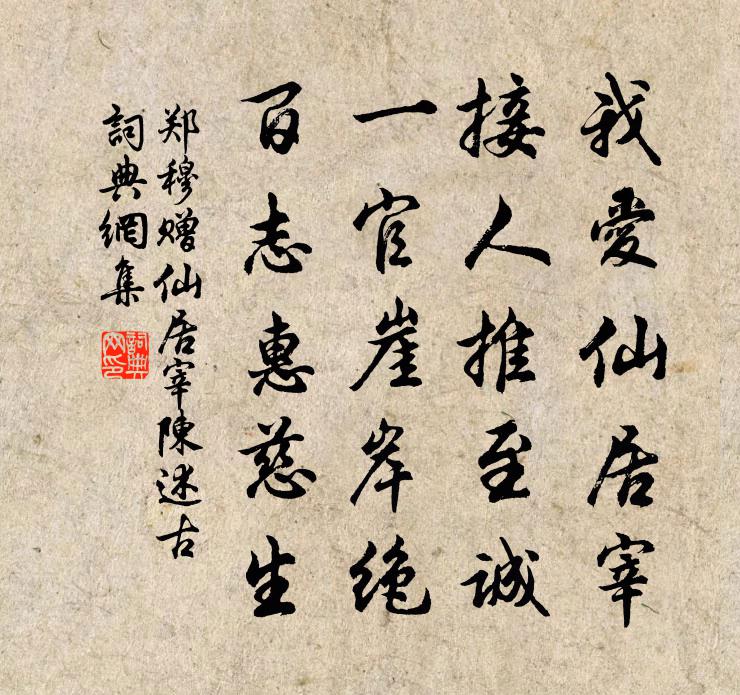 我愛仙居宰
接人推至诚
一官崖岸绝
百志惠慈生
郑穆赠仙居宰陳述古
詞典網集
詞典
网印